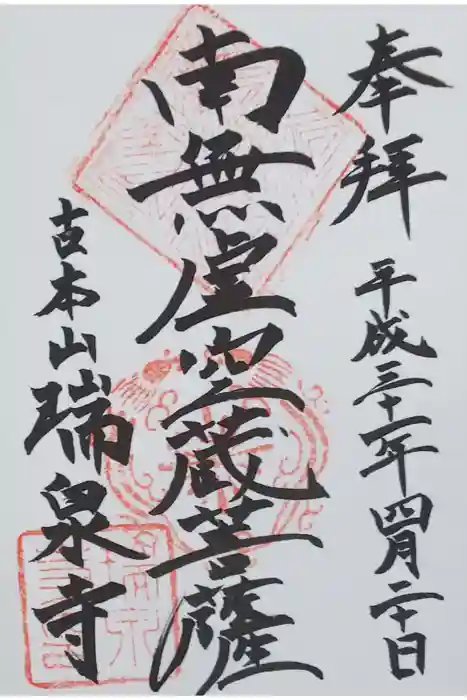 奉拝
平成三十一年四月二十日
南無虚空蔵菩薩
古本山瑞泉寺